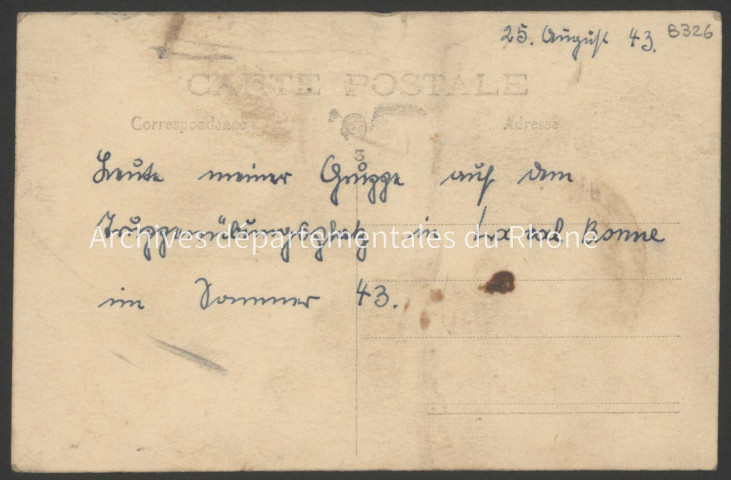 25. August 43. B326
CARTE POSTALE
Correspondance Adresse
3
Leute meiner Gruppe auf dem
Truppenübungsplatz in La Valbonne
Archives départementales du Rhône
im Sommer 43.